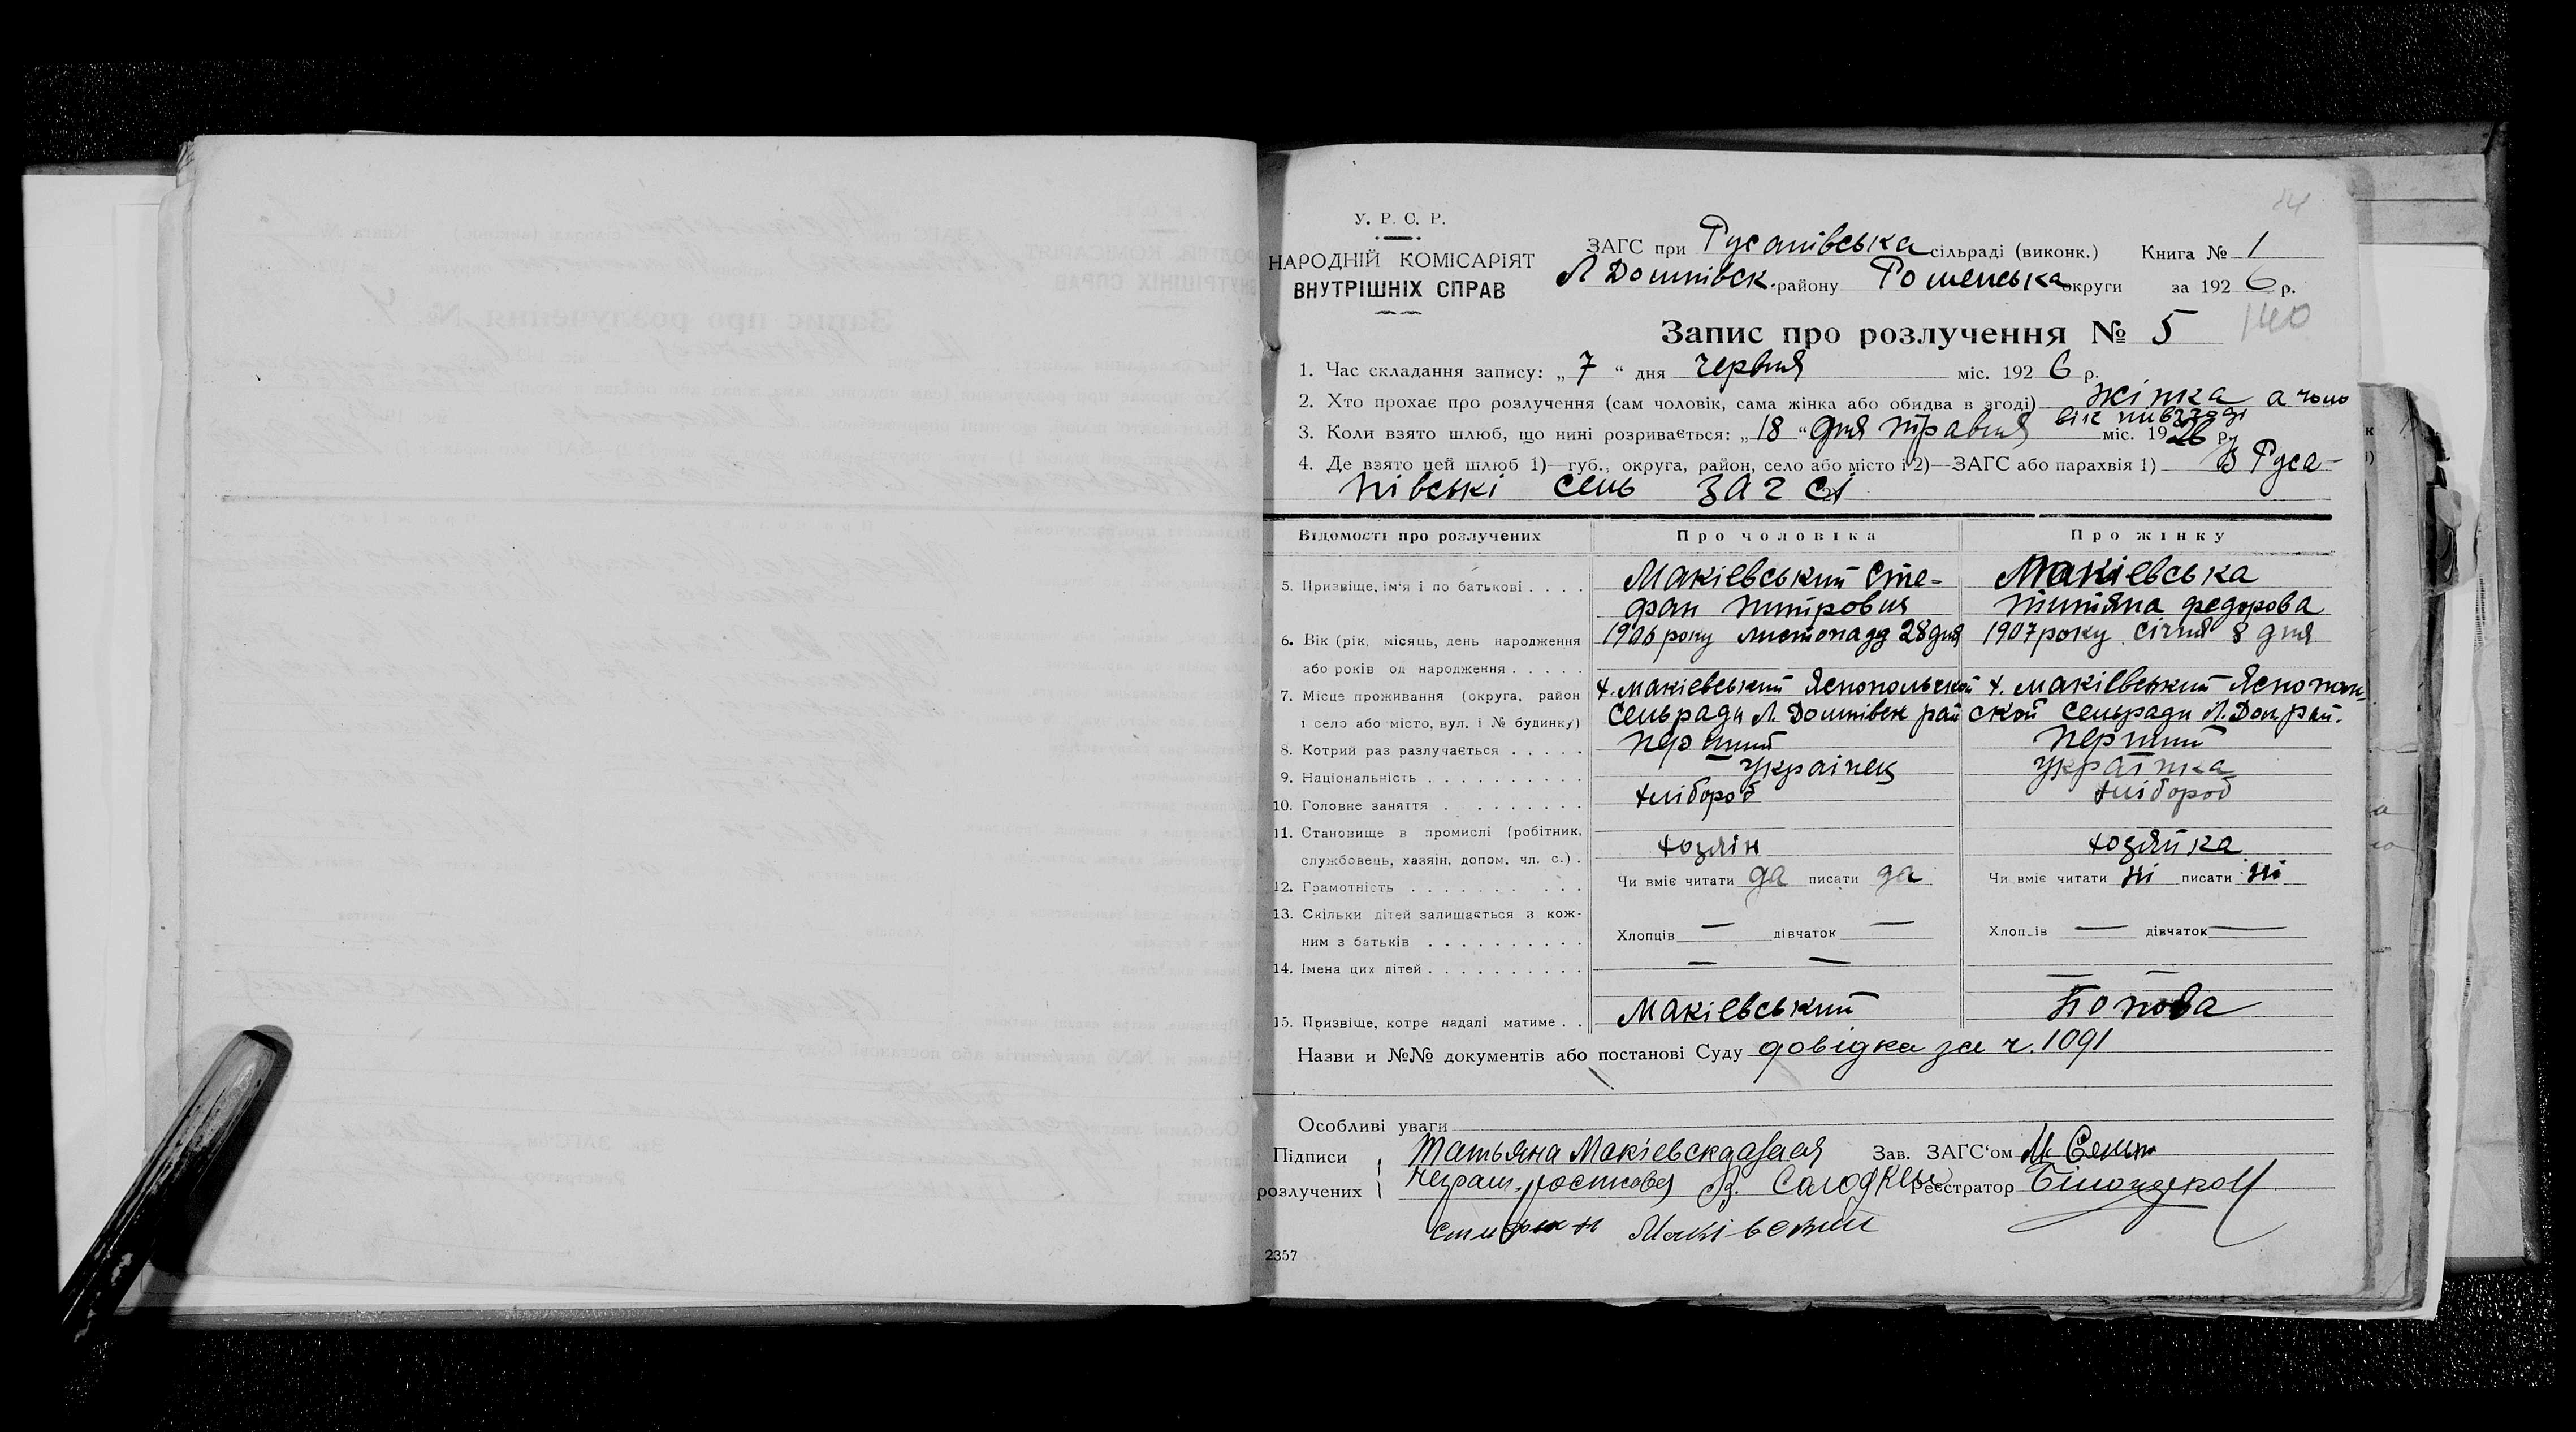 14
У. Р. С. Р.
НАРОДНІЙ КОМІСАРІЯТ
ВНУТРІШНІХ СПРАВ
ЗАГС при Русанівська сільраді (виконк.) Книга № 1
Л Долинівск. району Роменська округи за 1926 р.
140
Запис про розлучення № 5
1. Час складання запису: „7“ дня червня міс. 1926 р.
2. Хто прохає про розлучення (сам чоловік, сама жінка або обидва в згоді) жінка а чоло
вік
3. Коли взято шлюб, що нині розривається: „18“ дня травня міс. 1926 р.
4. Де взято цей шлюб 1)—губ., округа, район, село або місто і 2)—ЗАГС або парахвія 1) В Руса-
нівські сель загсі
Відомості про розлучених Про чоловіка Про жінку
5. Призвіще, ім'я і по батькові . . . . Макіевський Сте- Макіевська
фан питровия титяна федорова
6. Вік (рік, місяць, день народження 1906 року листопадд 28 дня 1907 року січня 8 дня
або років од народження . . . . .
7. Місце проживання (округа, район х. макіевський Яснопольской х. макіевський Яснополь
і село або місто, вул. і № будинку) сельради Л. Долинівск рай ской сельради Л. Дол рай.
8. Котрий раз разлучається . . . . . перший перший
9. Національність . . . . . . . . . . украінец украінка
10. Головне заняття . . . . . . . . хлібороб хлібороб
11. Становище в промислі (робітник,
службовець, хазяін, допом. чл. с.) . хозяін хозяйка
12. Грамотність . . . . . . . . . . Чи вміє читати да писати да Чи вміє читати ні писати ні
13. Скільки дітей залишається з кож-
ним з батьків . . . . . . . . . . Хлопців — дівчаток — Хлопців — дівчаток —
14. Імена цих дітей . . . . . . . . . . — — — —
15. Призвіще, котре надалі матиме . . Макіевський Попова
Назви и №№ документів або постанові Суду довідка за ч. 1091
Особливі уваги
Підписи Татьяна Зав. ЗАГС'ом М
розлучених В. Реєстратор
2357